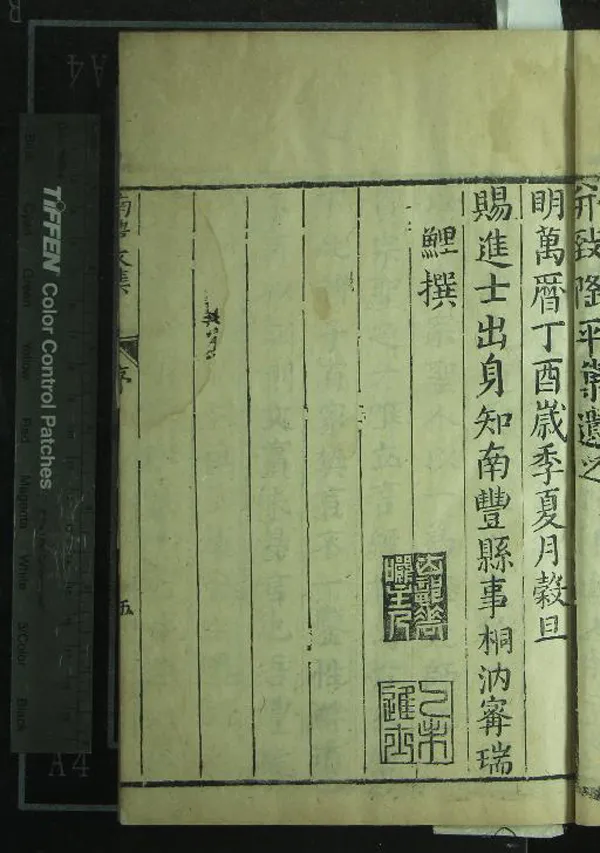 明萬曆丁酉歲季夏月穀旦
賜進士出身知南豐縣事桐汭甯瑞
鯉撰
乙未
進士
南豐文集
序
五
TIFFEN Color Control Patches
Blue
Cyan
Green
Yellow
Red
Magenta
White
3/Color
Black
A4
A4